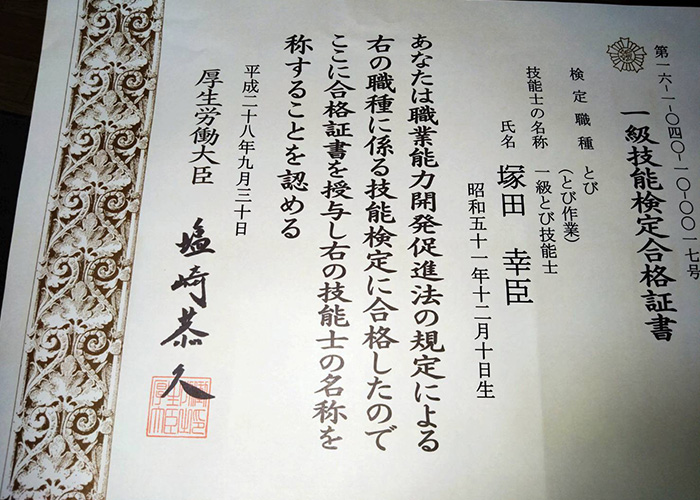 第一六-一-〇四〇-一〇-〇〇一七号
一級技能検定合格証書
検定職種 とび
(とび作業)
技能士の名称 一級とび技能士
氏名 塚田 幸臣
昭和五十一年十二月十日生
あなたは職業能力開発促進法の規定による
右の職種に係る技能検定に合格したので
ここに合格証書を授与し右の技能士の名称を
称することを認める
平成二十八年九月三十日
厚生労働大臣 塩崎恭久